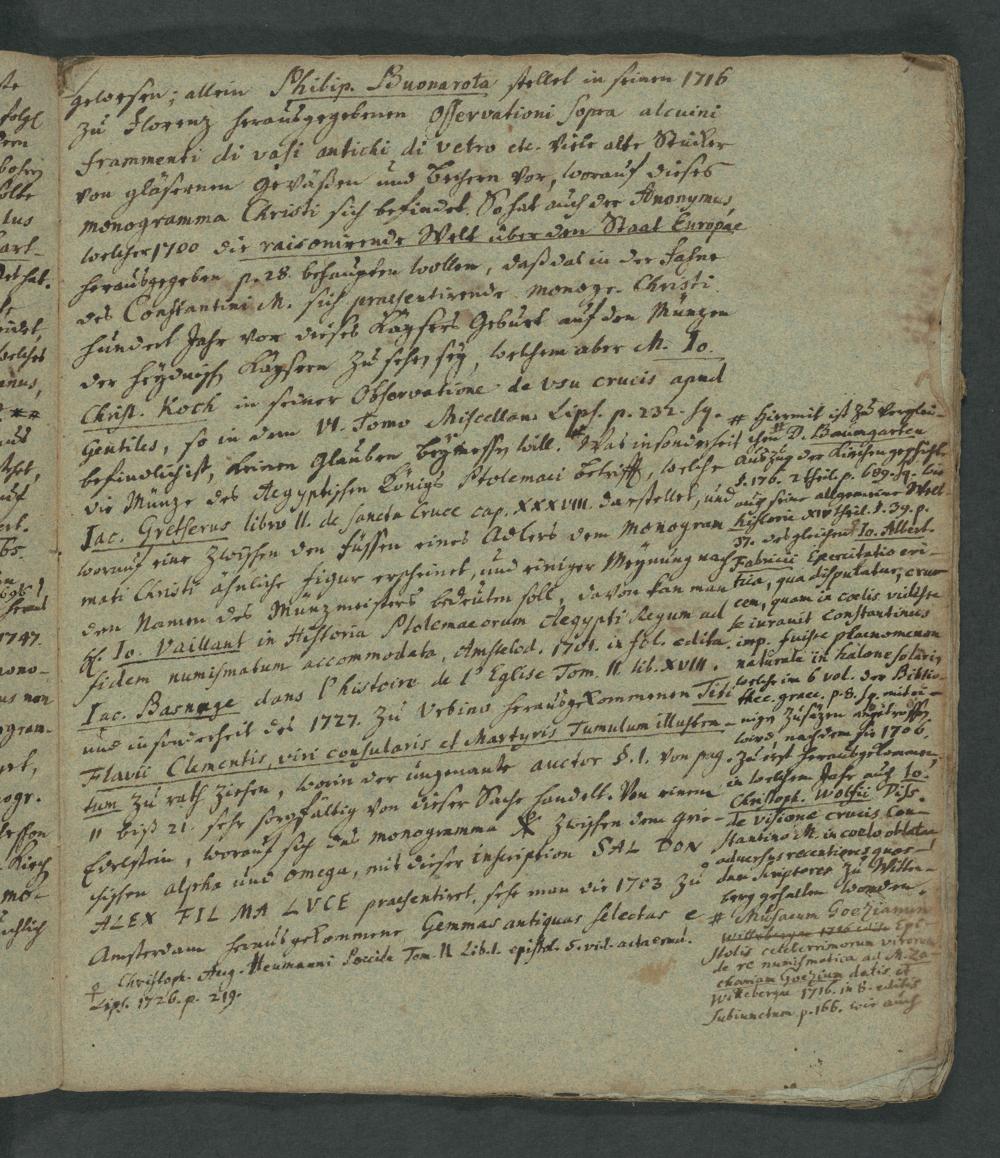 gewesen; allein Philip. Buonarota stellet in seinen 1716
zu Florenz herausgegebenen Osservationi sopra alcuini
frammenti di vasi antichi di vetro etc. viele alte Stücker
von gläsernen Gefäßen und Bechern vor, worauf dieses
monogramma Christi sich befindet. So hat auch der Anonymus,
welcher 1700 die raisonirende Welt über den Staat Europae
herausgegeben p. 28. behaupten wollen, daß das in der Fahne
des Constantini M. sich praesentirende monogr. Christi
hundert Jahr vor dieses Kaysers Geburt auf den Münzen
der heydnisch Kaysern zu sehen sey, welchem aber M. Io.
Christ. Koch in seiner Observatione de vsu crucis apud
Gentiles, so in dem VI. Tomo Miscellan. Lips. p. 232. sq.
befindlich ist, keinen Glauben beymessen will. Was insonderheit
die Münze des Aegyptischen Königs Ptolemaei betrifft, welche
Iac. Gretserus libro II. de sancta Cruce cap. XXXVIII. darstellet, und
worauf eine zwischen den Füssen eines Adlers dem Monogram
mati Christi ähnliche Figur erscheinet, und einiger Meynung nach
den Namen des Münzmeisters bedeuten soll, davon kan man
Io. Vaillant in Historia Ptolemaeorum Aegypti Regum ad
fidem numismatum accommodata, Amstelod. 1701. in fol. edita
Iac. Basnage dans l'histoire de l'Eglise Tom. II. lib. XVIII.
und insonderheit des 1727. zu Vrbino herausgekommenen Titi
Flavii Clementis, viri consularis et Martyris Tumulum illustra-
tum zu rath ziehen, worin der ungenante auctor §. 1. von pag.
11 biß 21. sehr sorgfältig von dieser Sache handelt. Von einem
Edelstein, worauf sich das monogramma ☧ zwischen dem Grie-
chischen alpha und omega, mit dieser inscription SAL DON
ALEX FIL MA LVCE praesentiret, sehe man die 1703 zu
Amsterdam herausgekommene Gemmas antiquas selectas e
Christoph. Aug. Heumanni Poecile Tom. II Lib. I. epistol. 5. vid. acta erud.
Lips. 1726. p. 219.
# Hiermit ist zu verglei-
chen D. Baumgarten
Auszug der Kirchengeschicht
§. 176. 2 theil. p. 689. sq. wie
auch seine allgemeine Welt
historie XIV theil. §. 39. p.
37. desgleichen Io. Albert.
Fabricii Exercitatio cri-
tica, qua disputatur, cru
cem, quam in coelis vidisse
se iurauit Constantinus
imp. fuisse phaenomenon
naturale in halone solaris
welche im 6 vol. der Biblio-
thec. graec. p. 8. sq. mit ei-
nigen Zusätzen angetroffen
wird, nachdem sie 1706.
zu erst herausgekommen,
in welchem Jahr auch Io.
Christoph. Wolfii Diss.
de visione crucis Con-
stantino M. in coelo oblatae
adversus recentiores quos-
dam scriptores zu Witten-
berg gehalten worden.
# Musaeum Goezianum
Epi-
stolis celeberrimorum virorum
de re numismatica ad M. Za-
chariam Goezium datis et
Wittebergae 1716. in 8. editis
subiunctum p. 166. wie auch